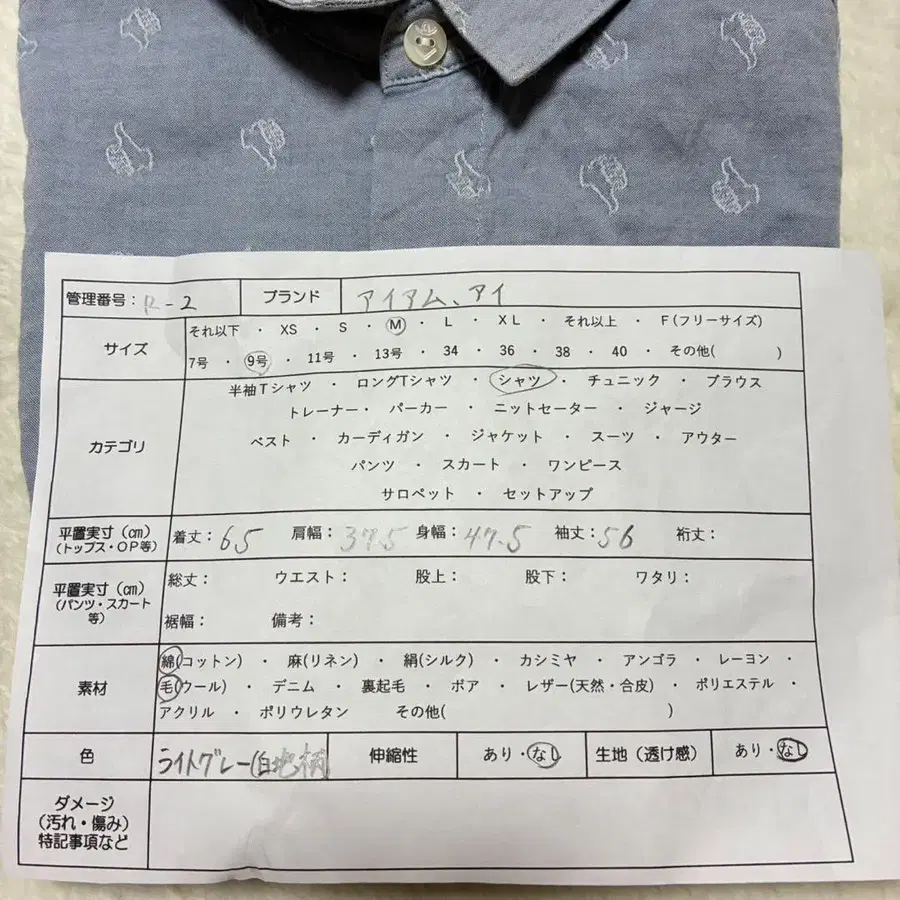 管理番号：R-2 ブランド アイアム、アイ
サイズ それ以下 ・ XS ・ S ・ M ・ L ・ XL ・ それ以上 ・ F(フリーサイズ)
7号 ・ 9号 ・ 11号 ・ 13号 ・ 34 ・ 36 ・ 38 ・ 40 ・ その他( )
カテゴリ 半袖Tシャツ ・ ロングTシャツ ・ シャツ ・ チュニック ・ ブラウス
トレーナー・ パーカー ・ ニットセーター ・ ジャージ
ベスト ・ カーディガン ・ ジャケット ・ スーツ ・ アウター
パンツ ・ スカート ・ ワンピース
サロペット ・ セットアップ
平置実寸（㎝）
(トップス・OP等) 着丈：65 肩幅：37.5 身幅：47.5 袖丈：56 裄丈：
平置実寸（㎝）
(パンツ・スカート
等)
総丈： ウエスト： 股上： 股下： ワタリ：
裾幅： 備考：
素材 綿(コットン) ・ 麻(リネン) ・ 絹(シルク) ・ カシミヤ ・ アンゴラ ・ レーヨン ・
毛(ウール) ・ デニム ・ 裏起毛 ・ ボア ・ レザー(天然・合皮) ・ ポリエステル ・
アクリル ・ ポリウレタン その他( )
色 ライトグレー(白地柄 伸縮性 あり・なし 生地（透け感） あり・なし
ダメージ
（汚れ・傷み）
特記事項など